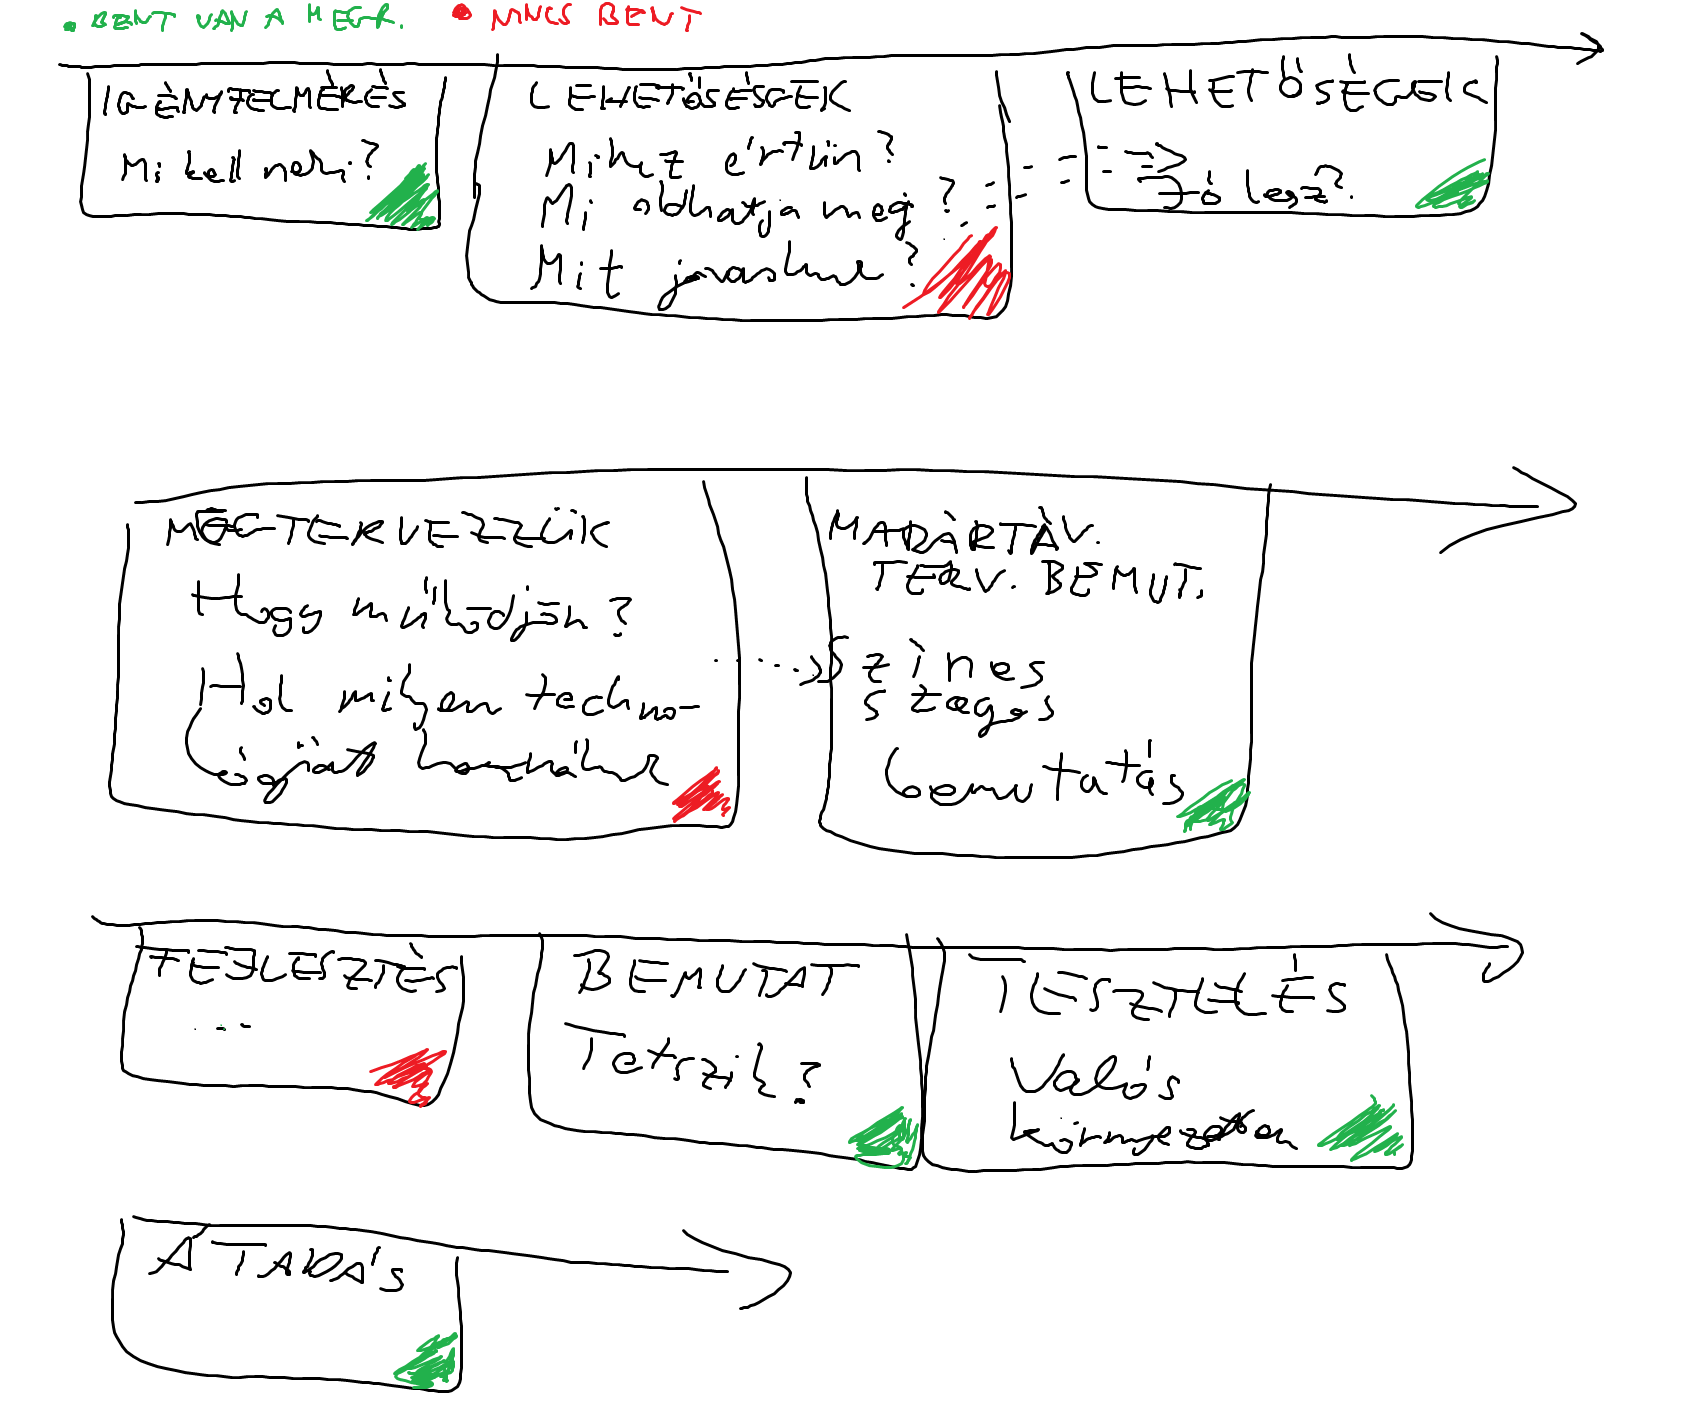 BENT VAN A MEGR.
NINCS BENT
IGÉNYFELMÉRÉS
Mi kell neki?
LEHETŐSÉGEK
Mihez értünk?
Mi oldhatja meg?
Mit javaslunk?
LEHETŐSÉGEK
Jó lesz?
MEGTERVEZZÜK
Hogy működjön?
Hol milyen techno-
lógiát használunk
MADÁRTÁV.
TERV. BEMUT.
Színes
szagos
bemutatás
FEJLESZTÉS
...
BEMUTAT
Tetszik?
TESZTELÉS
Valós
környezetben
ÁTADÁS